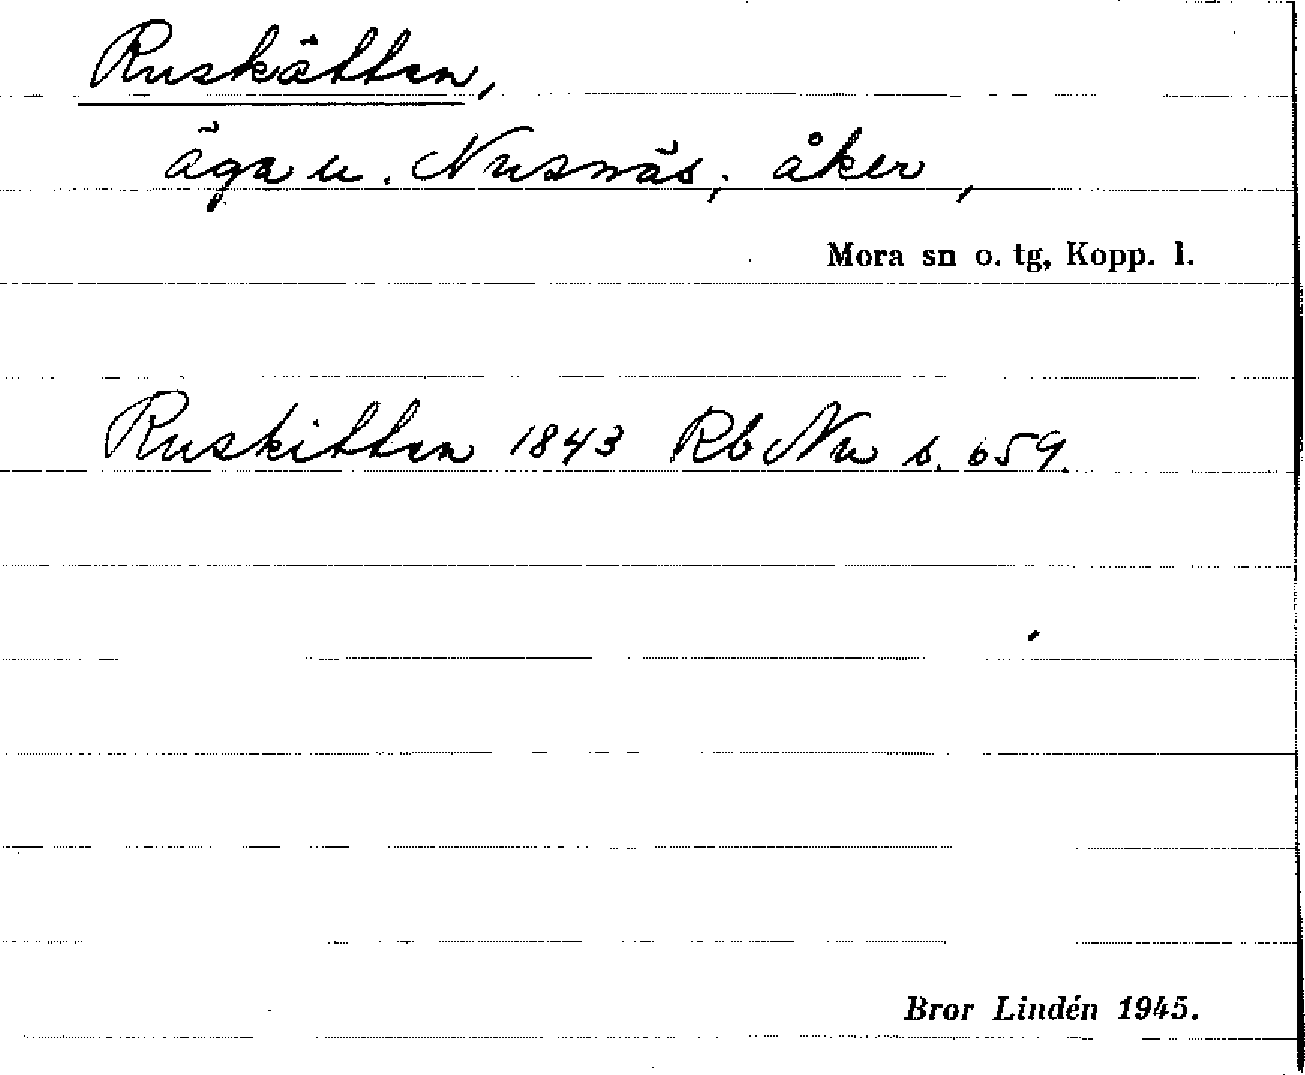 Ruskätten,
äga u. Nusnäs; åker,
Mora sn o. tg, Kopp. l.
Ruskitten 1843 Rb Nu s. 659.
Bror Lindén 1945.